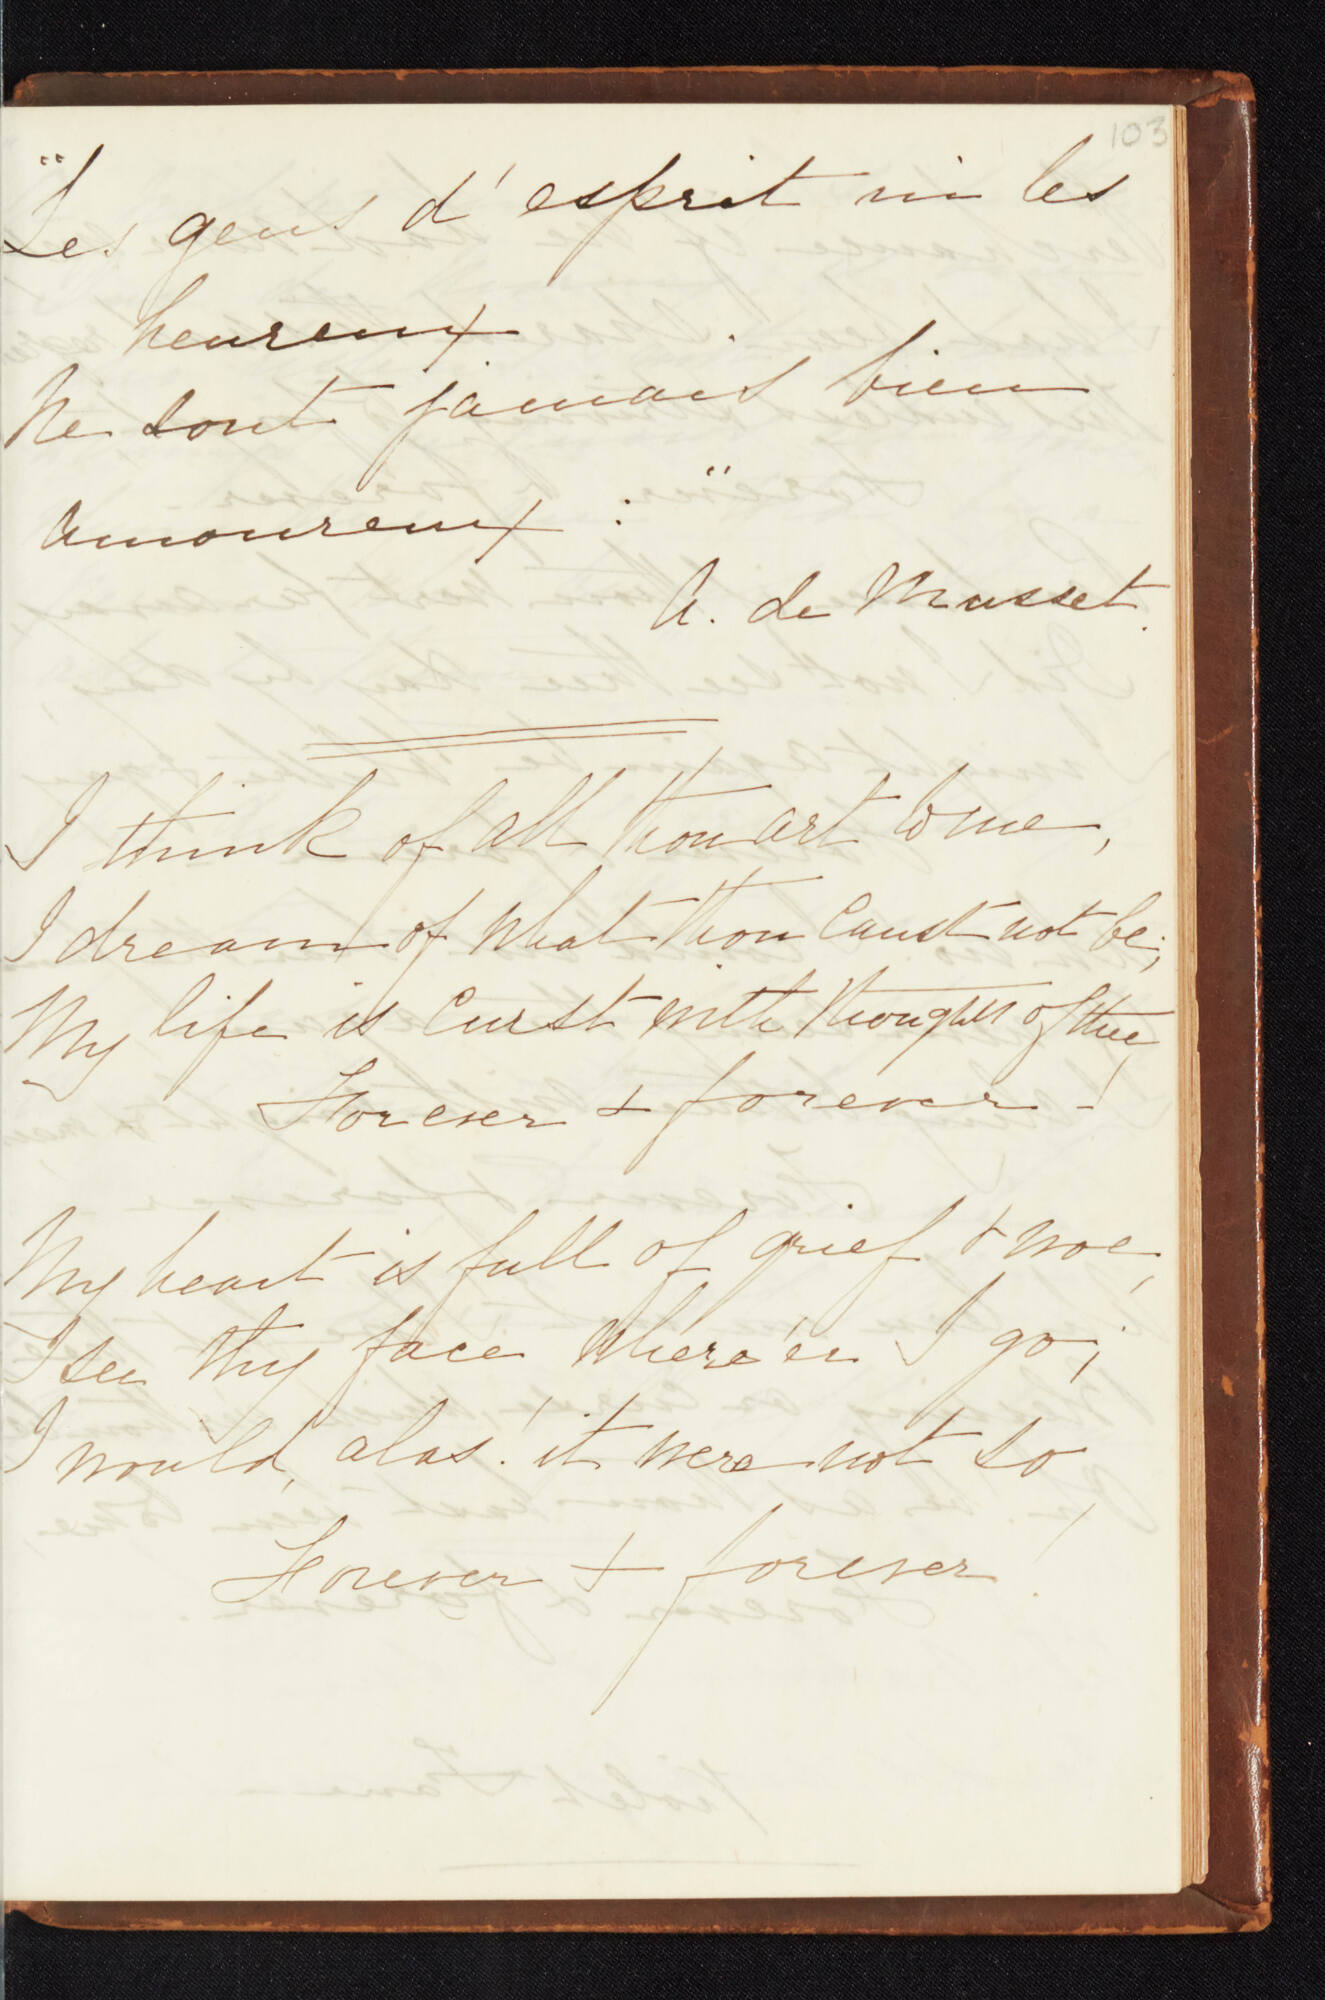 103
"Les gens d'esprit ni les
heureux
Ne sont jamais bien
amoureux : "
A. de Musset.
I think of all thou art to me,
I dream of what thou canst not be;
My life is curst with thoughts of thee
Forever + forever - !
My heart is full of grief + woe,
I see thy face where'er I go;
I would, alas! it were not so
Forever + forever!